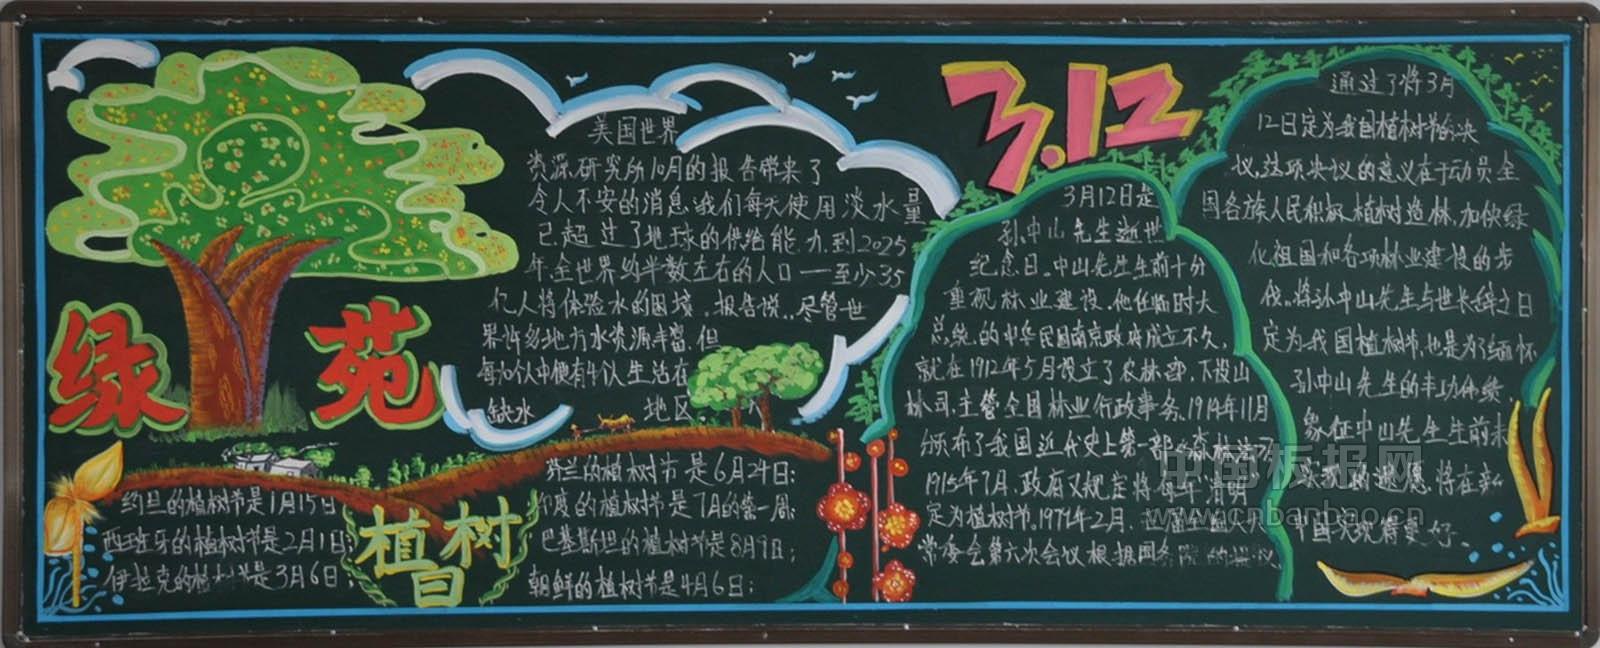 绿苑
美国世界
资源研究所10月的报告带来了
令人不安的消息:我们每天使用淡水量
已超过了地球的供给能力,到2025
年,全世界约半数左右的人口——至少35
亿人将体验水的困境。报告说,尽管世
界许多地方水资源丰富,但
每10个人中便有4个人生活在
缺水 地区
约旦的植树节是1月15日
西班牙的植树节是2月1日;
伊拉克的植树节是3月6日;
植树
日
芬兰的植树节是6月24日;
印度的植树节是7月的第一周;
巴基斯坦的植树节是8月9日;
朝鲜的植树节是4月6日;
3.12
3月12日是
孙中山先生逝世
纪念日。中山先生生前十分
重视林业建设。他任临时大
总统的中华民国南京政府成立不久,
就在1912年5月设立了农林部,下设山
林司,主管全国林业行政事务,1914年11月
颁布了我国近代史上第一部《森林法》
1915年7月,政府又规定将每年清明
定为植树节。1979年2月,
常委会第六次会议根据国务院的提议
通过了将3月
12日定为我国植树节的决
议,这项决议的意义在于动员全
国各族人民积极植树造林,加快绿
化祖国和各项林业建设的步
伐。将孙中山先生与世长辞之日
定为我国植树节,也是为了缅怀
孙中山先生的丰功伟绩,
象征中山先生生前未
实现的遗愿,将在新
中国实现得更好。
中国板报网
www.cnbanbao.cn